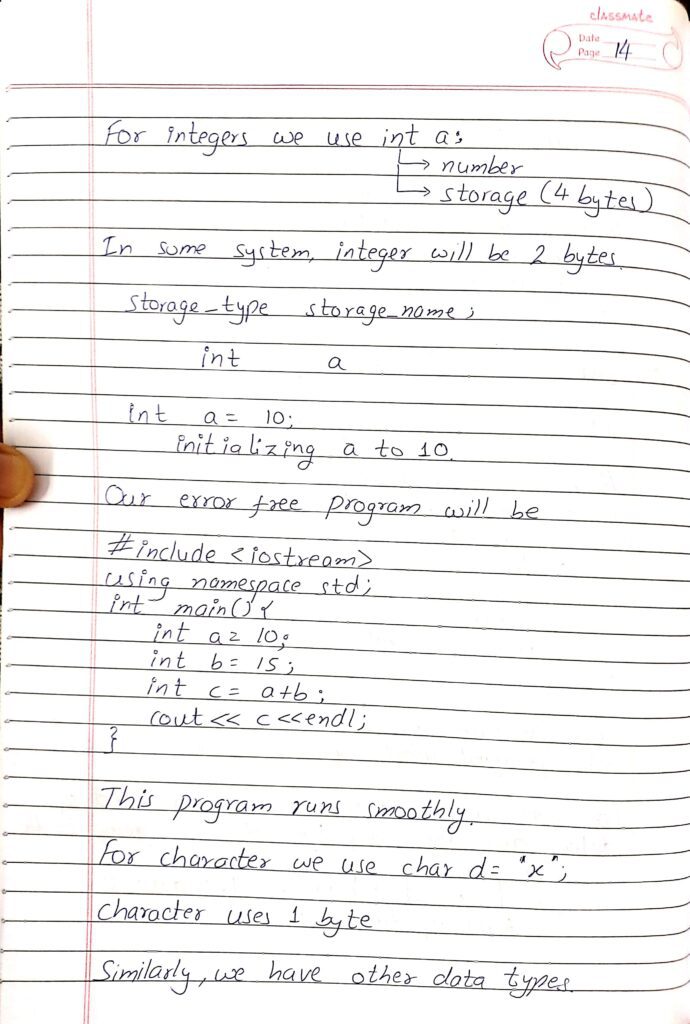 classmate
Date
Page 14
For integers we use int a;
→ number
→ storage (4 bytes)
In some system, integer will be 2 bytes.
Storage_type storage_name;
int a
int a = 10;
initializing a to 10.
Our error free program will be
#include <iostream>
using namespace std;
int main() {
int a = 10;
int b = 15;
int c = a+b;
cout << c <<endl;
}
This program runs smoothly.
For character we use char d = "x";
Character uses 1 byte
Similarly, we have other data types.